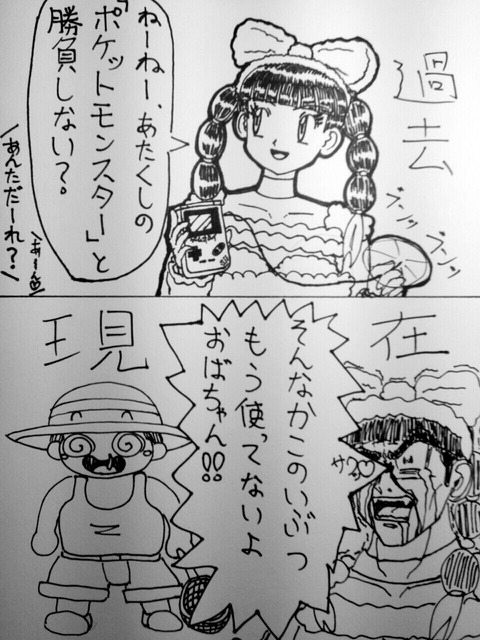 過去
ねーねー、あたくしの
「ポケットモンスター」と
勝負しない?
あんただーれ?
あーん♡
ズンッ
ズンッ
現在
そんなかこのいぶつ
もう使ってないよ
おばちゃん!!